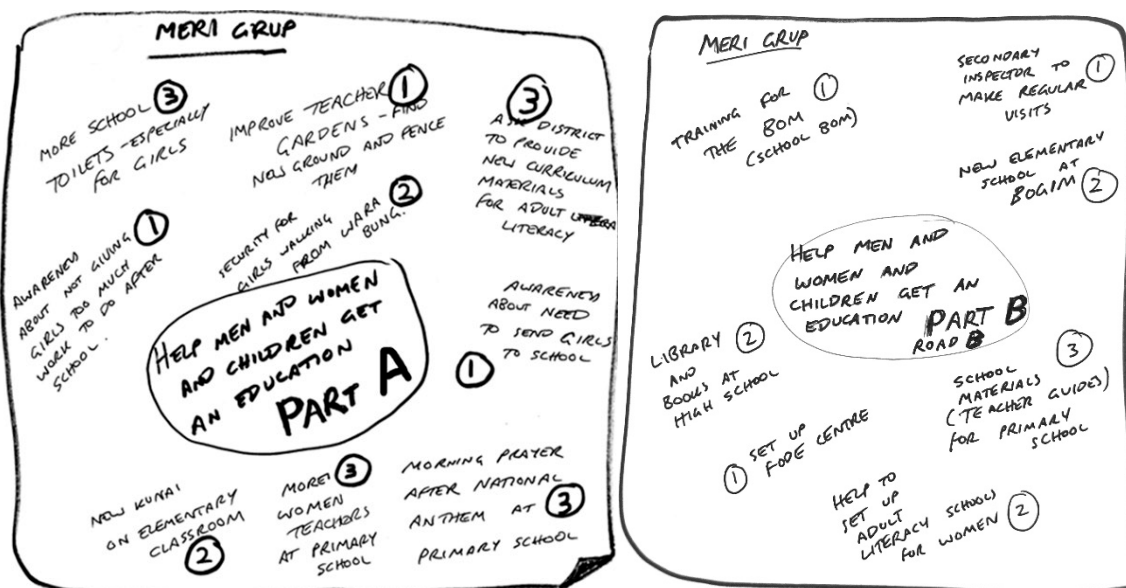 MERI GRUP
MORE SCHOOL 3
TOILETS - ESPECIALLY
FOR GIRLS
IMPROVE TEACHER 1
GARDENS - FIND
NEW GROUND AND FENCE
THEM
3
ASK DISTRICT
TO PROVIDE
NEW CURRICULUM
MATERIALS
FOR ADULT
LITERACY
AWARENESS 1
ABOUT NOT GIVING
GIRLS TOO MUCH
WORK TO DO AFTER
SCHOOL.
SECURITY FOR 2
GIRLS WALKING
FROM WARA
BUNG.
HELP MEN AND WOMEN
AND CHILDREN GET
AN EDUCATION
PART A
AWARENESS
ABOUT NEED
TO SEND GIRLS
TO SCHOOL
1
NEW KUNAI
ON ELEMENTARY
CLASSROOM
2
MORE 3
WOMEN
TEACHERS
AT PRIMARY
SCHOOL
MORNING PRAYER
AFTER NATIONAL
ANTHEM AT 3
PRIMARY SCHOOL
MERI GRUP
TRAINING FOR 1
THE BOM
(SCHOOL BOM)
SECONDARY
INSPECTOR TO 1
MAKE REGULAR
VISITS
NEW ELEMENTARY
SCHOOL AT
BOGIM 2
HELP MEN AND
WOMEN AND
CHILDREN GET AN
EDUCATION PART B
ROAD B
LIBRARY 2
AND
BOOKS AT
HIGH SCHOOL
3
SCHOOL
MATERIALS
(TEACHER GUIDES)
FOR PRIMARY
SCHOOL
SET UP
1 FODE CENTRE
HELP TO
SET UP
ADULT
LITERACY SCHOOL
FOR WOMEN 2